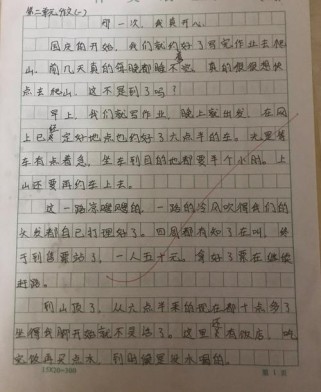 第二单元作文(一)
那一次,我真开心
国庆的开始,我们就约好了写完作业去爬
山。前几天真的每晚都睡不着,真的很想快
点去爬山,这不是到了吗?
早上,我们就写作业,晚上就出发,在网
上已经定好地点也约好了六点半的车。光是等
车有点着急,坐车到目的地都要半个小时。上
山还要再约车上去。
这一路凉飕飕的,一路的冷风吹得我们的
头发都自己打理好了。四周都有知了在叫,终
于到售票站了,一人五十元。拿好了票在继续
赶路。
到山顶了,从六点半来的现在都十点多了
坐得我脚开始就不灵活了。这里还有饭店,吃
完饭再买点水,到时候里没水喝的。
15×20=300
第1页